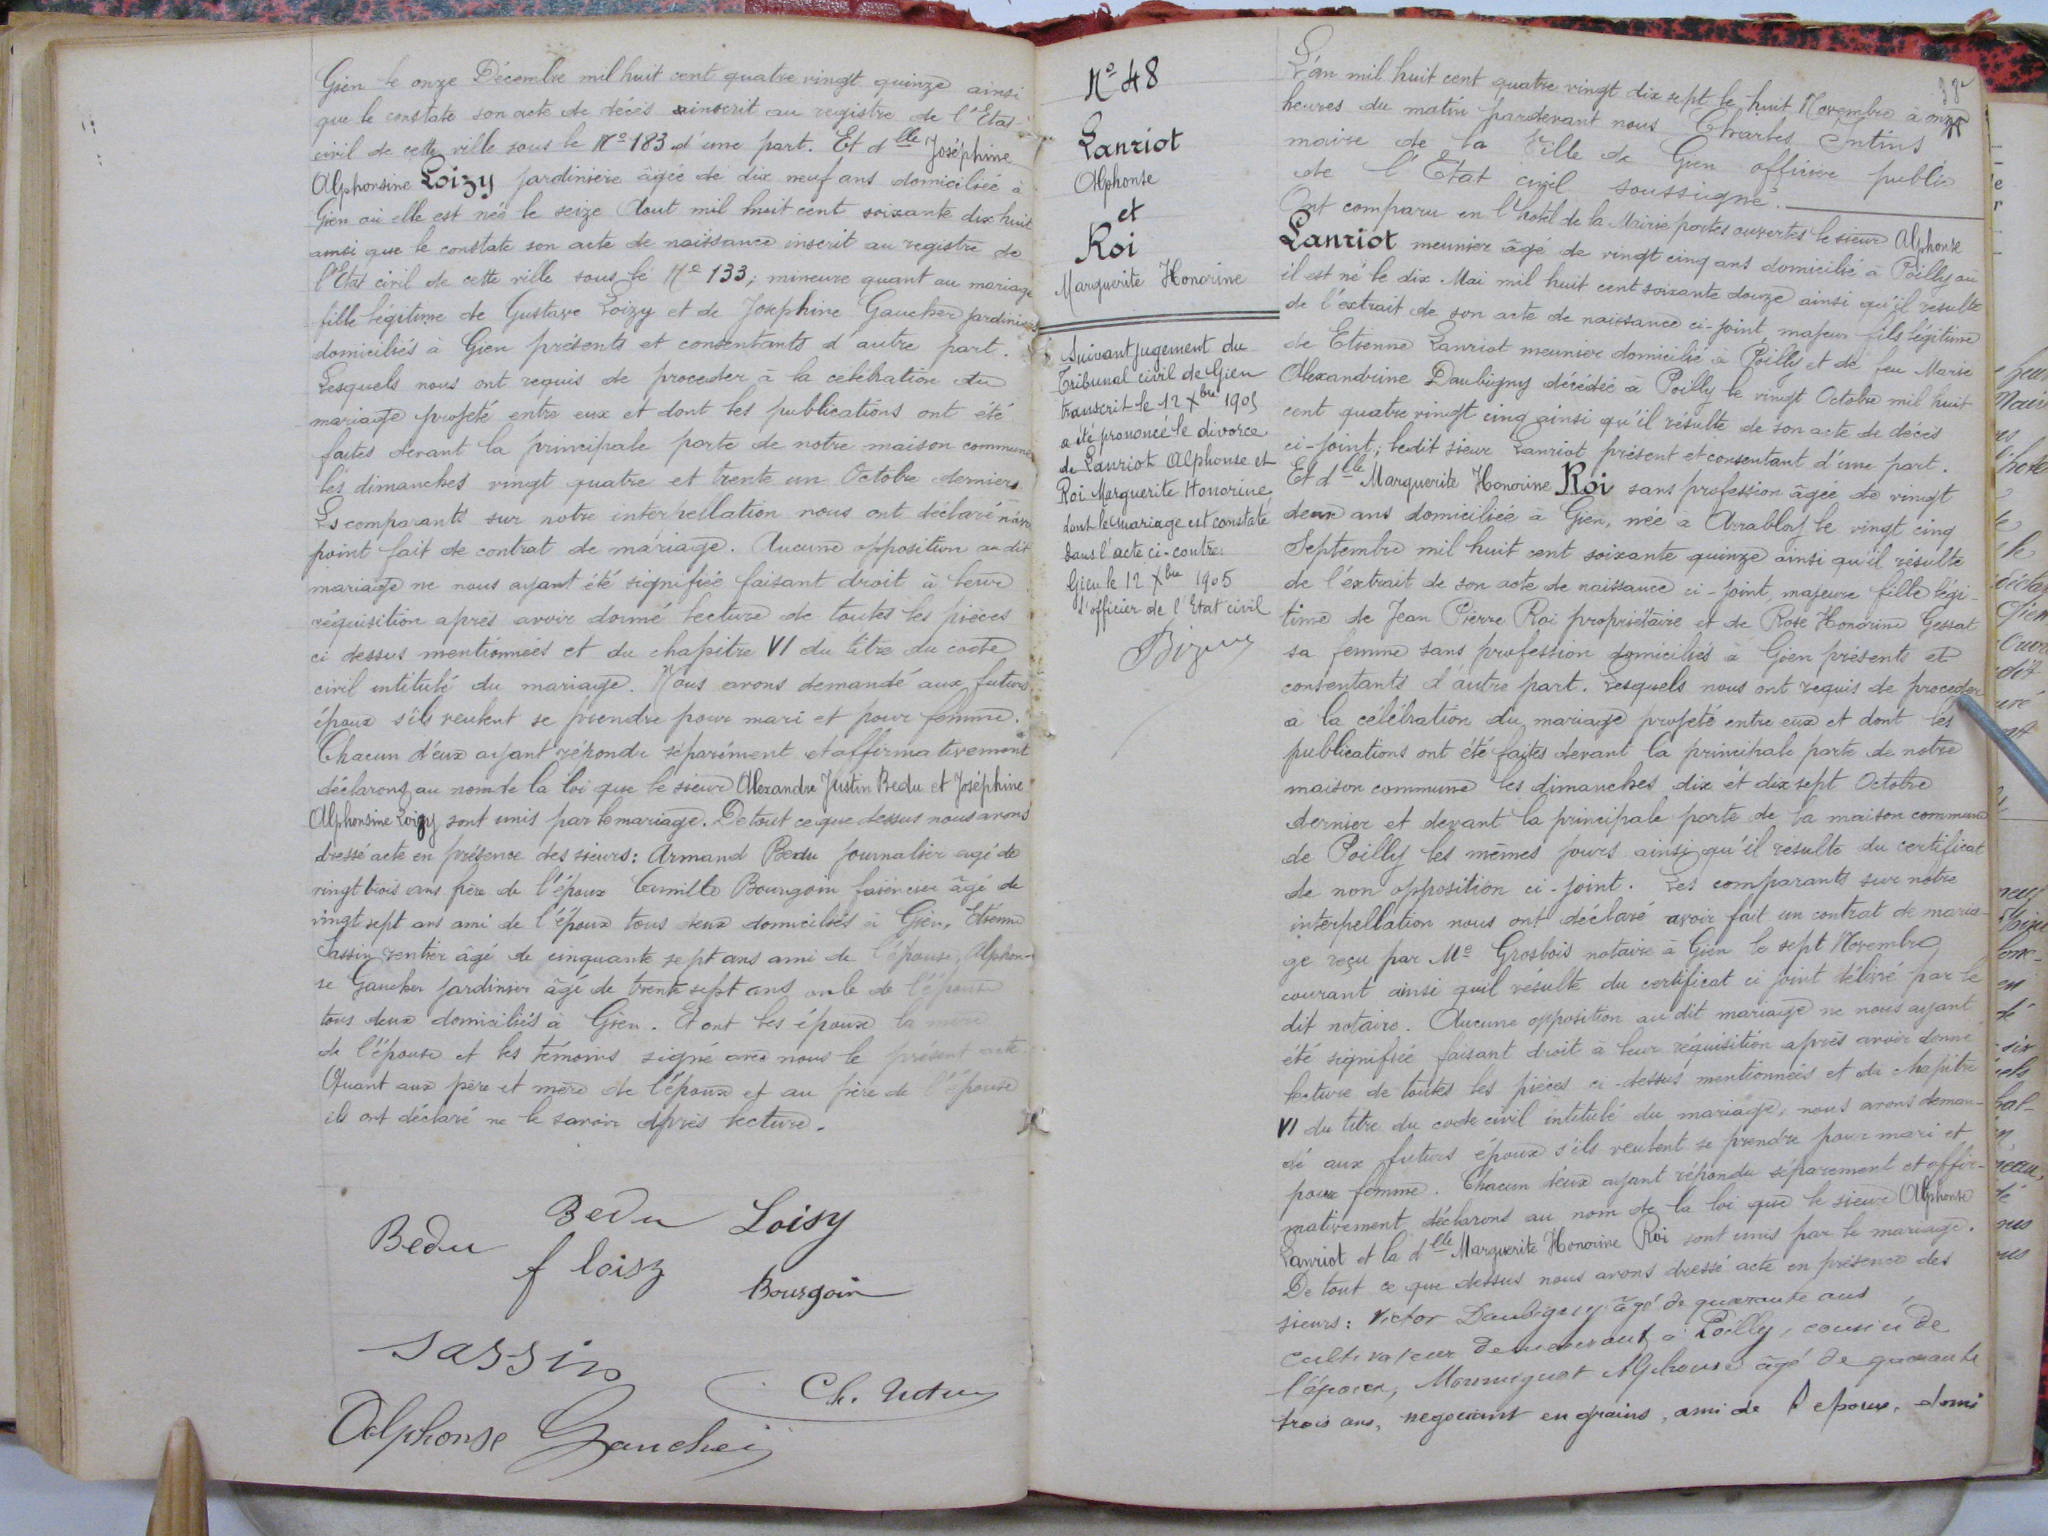 Gien le onze Décembre mil huit cent quatre vingt quinze ainsi
que le constate son acte de décès inscrit au registre de l'Etat
civil de cette ville sous le N° 183 d'une part. Et dlle Joséphine
Alphonsine Loizy jardinière âgée de dix neuf ans domiciliée à
Gien où elle est née le seize Aout mil huit cent soixante dix huit
ainsi que le constate son acte de naissance inscrit au registre de
l'Etat civil de cette ville sous le N° 133; mineure quant au mariage
fille légitime de Gustave Loizy et de Joséphine Gaucher jardiniers
domiciliés à Gien présents et consentants d'autre part.
Lesquels nous ont requis de proceder à la celébration du
mariage projeté entre eux et dont les publications ont été
faites devant la principale porte de notre maison commune
les dimanches vingt quatre et trente un Octobre derniers
Ls comparants sur notre interpellation nous ont déclaré n'avoir
point fait de contrat de mariage. Aucune opposition au dit
mariage ne nous ayant été signifiée faisant droit à leur
réquisition après avoir donné lecture de toutes les pièces
ci dessus mentionnées et du chapitre VI du titre du code
civil intitulé du mariage. Nous avons demandé aux futurs
époux s'ils veulent se prendre pour mari et pour femme.
Chacun d'eux ayant répondu séparément et affirmativement
déclarons au nom de la loi que le sieur Alexandre Justin Bedu et Joséphine
Alphonsine Loizy sont unis par le mariage. De tout ce que dessus nous avons
dressé acte en présence des sieurs: Armand Bedu journalier agé de
vingt trois ans frère de l'époux Camille Bourgoin faïencier âgé de
vingt sept ans ami de l'époux tous deux domiciliés à Gien, Etienne
Sassin rentier âgé de cinquante sept ans ami de l'épouse, Alphon-
se Gaucher jardinier âgé de trente sept ans oncle de l'épouse
tous deux domiciliés à Gien. Et ont les époux la mère
de l'épouse et les témoins signé avec nous le présent acte
Quant aux père et mère de l'époux et au père de l'épouse
ils ont déclaré ne le savoir après lecture.
Bedu Bedu Loisy
f loisy Bourgoin
Sassin
Alphonse Gaucher
N° 48
Lanriot
Alphonse
et
Roi
Marguerite Honorine
Suivant jugement du
Tribunal civil de Gien
transcrit le 12 Xbre 1905
a été prononcé le divorce
de Lanriot Alphonse et
Roi Marguerite Honorine,
dont le mariage est constaté
dans l'acte ci-contre.
Gien le 12 Xbre 1905
l'officier de l'Etat civil
L'an mil huit cent quatre vingt dix sept le huit Novembre à onze
heures du matin pardevant nous Charles
maire de la Ville de Gien officier public
de l'Etat civil soussigné.
Ont comparu en l'hotel de la Mairie portes ouvertes le sieur Alphonse
Lanriot meunier âgé de vingt cinq ans domicilié à Poilly où
il est né le dix Mai mil huit cent soixante douze ainsi qu'il resulte
de l'extrait de son acte de naissance ci-joint, majeur fils légitime
de Etienne Lanriot meunier domicilié à Poilly et de feu Marie
Alexandrine Daubigny décédée à Poilly le vingt Octobre mil huit
cent quatre vingt cinq ainsi qu'il résulte de son acte de décès
ci-joint; ledit sieur Lanriot présent et consentant d'une part.
Et dlle Marguerite Honorine Roi sans profession âgée de vingt
deux ans domiciliée à Gien, née à Arrabloy le vingt cinq
Septembre mil huit cent soixante quinze ainsi qu'il résulte
de l'extrait de son acte de naissance ci-joint, majeure fille légi-
time de Jean Pierre Roi propriétaire et de Rose Honorine Gessat
sa femme sans profession domiciliés à Gien présents et
consentants d'autre part. Lesquels nous ont requis de proceder
à la célébration du mariage projeté entre eux et dont les
publications ont été faites devant la principale porte de notre
maison commune les dimanches dix et dix sept Octobre
dernier et devant la principale porte de la maison commune
de Poilly les mêmes jours ainsi qu'il résulte du certificat
de non opposition ci-joint. Les comparants sur notre
interpellation nous ont déclaré avoir fait un contrat de maria-
ge reçu par Me Grosbois notaire à Gien le sept Novembre
courant ainsi quil résulte du certificat ci joint délivré par le
dit notaire. Aucune opposition au dit mariage ne nous ayant
été signifiée faisant droit à leur réquisition après avoir donné
lecture de toutes les pièces ci-dessus mentionnées et du chapitre
VI du titre du code civil intitulé du mariage, nous avons deman-
dé aux futurs époux s'ils veulent se prendre pour mari et
pour femme. Chacun d'eux ayant répondu séparement et affir-
mativement, déclarons au nom de la loi que le sieur Alphonse
Lanriot et la dlle Marguerite Honorine Roi sont unis par le mariage.
De tout ce que dessus nous avons dressé acte en présence des
sieurs: Victor Daubigny âgé de quarante ans,
cultivateur demeurant à Poilly, cousin de
l'époux, Alphonse âgé de quarante
trois ans, negociant en grains, ami de l'epoux, domi